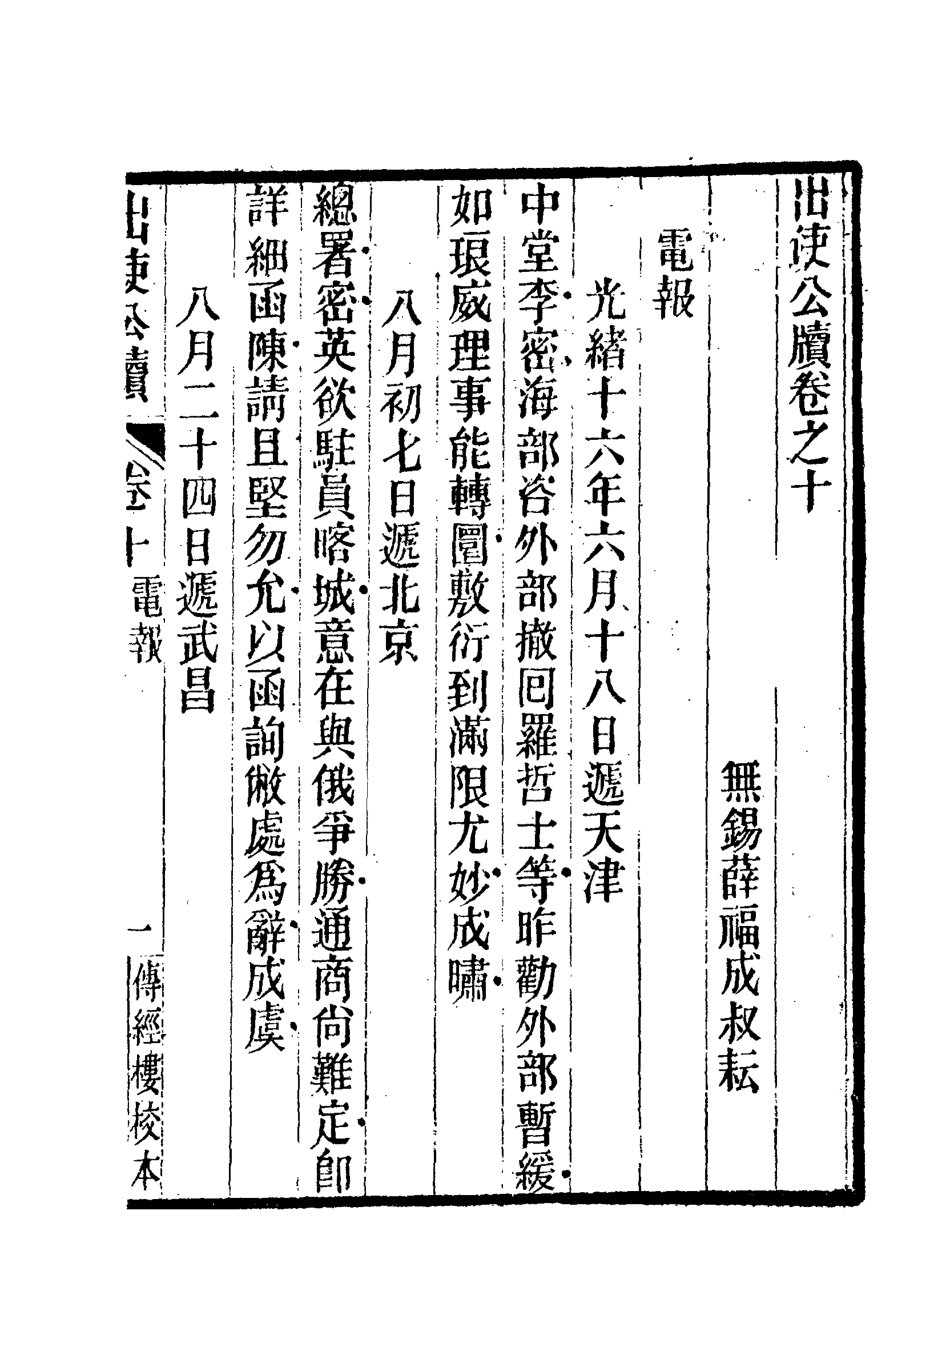 出使公牘卷之十
無錫薛福成叔耘
電報
光緒十六年六月十八日遞天津
中堂李密海部咨外部撤囘羅哲士等昨勸外部暫緩
如琅威理事能轉圜敷衍到滿限尤妙成嘯
八月初七日遞北京
總署密英欲駐員喀城意在與俄爭勝通商尙難定卽
詳細函陳請且堅勿允以函詢敝處爲辭成虞
八月二十四日遞武昌
出使公牘 卷十 電報 一 傳經樓校本